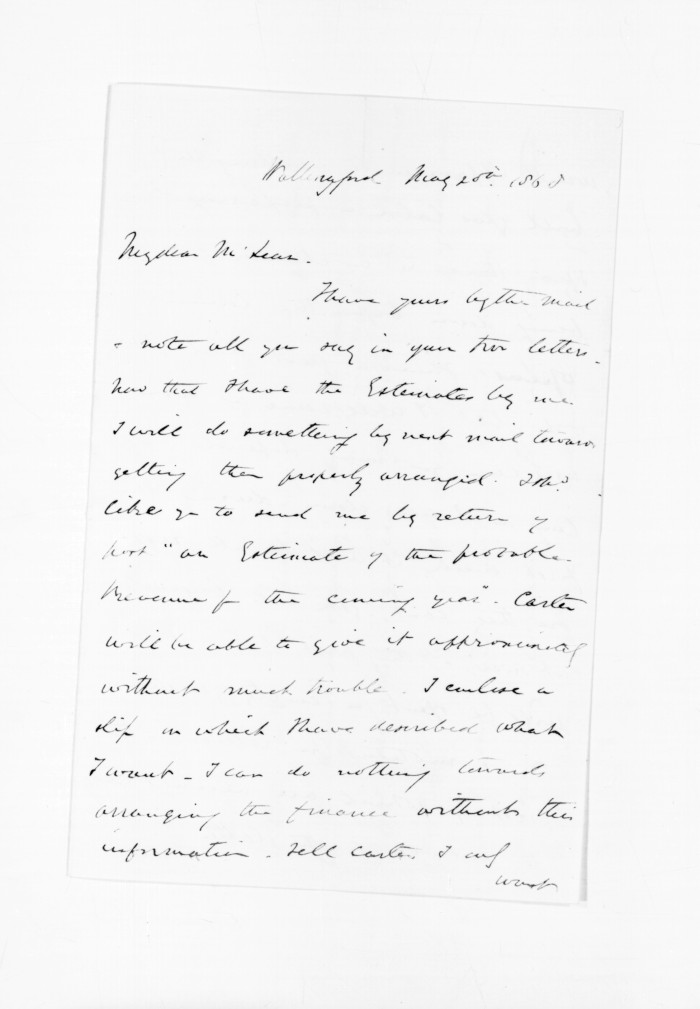 Wallingford May 20th. 1868
My dear McLean.
I have yours by the mail
& note all you say in your two letters.
Now that I have the Estimates by me
I will do something by next mail towards
getting them properly arranged. I shd.
like you to send me by return of
post "an Estimate of the probable
Revenue for the coming year". Carter
will be able to give it approximately
without much trouble. I enclose a
slip on which I have described what
I want - I can do nothing towards
arranging the finance without this
information. Tell Carter I only
want